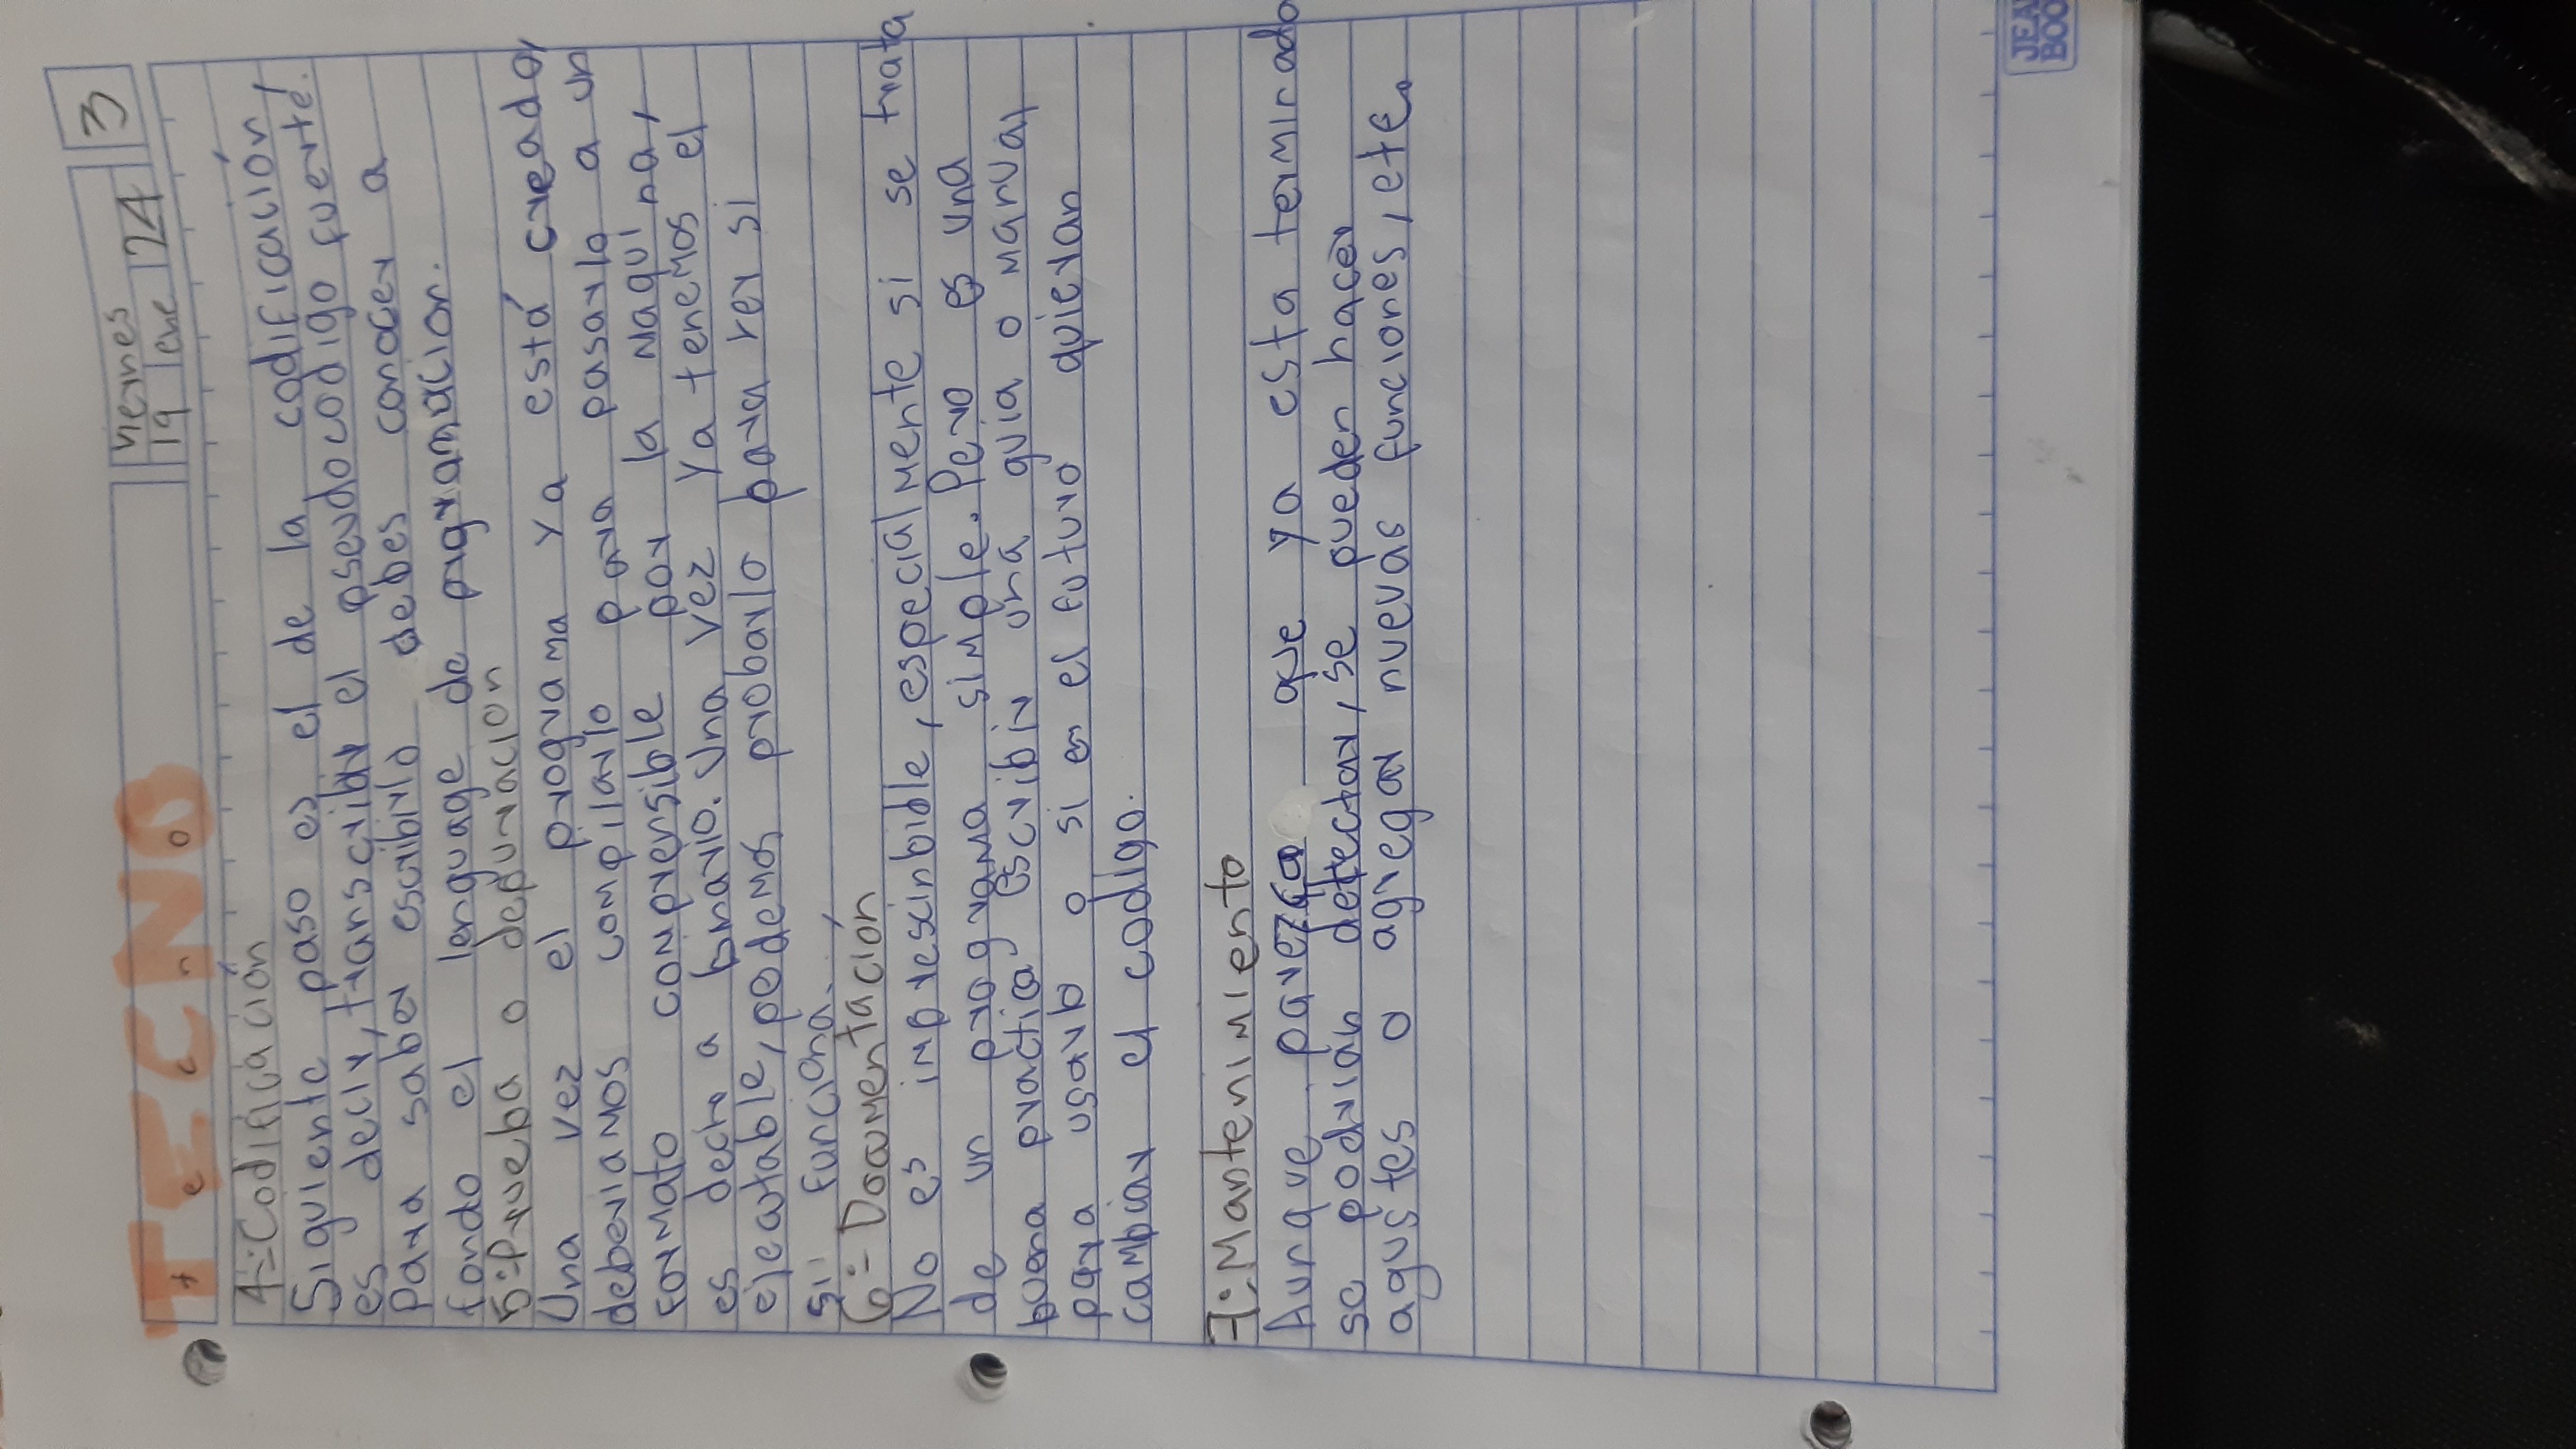 TECNO
tecno
viernes
19 ene 24
3
4:-Codificación
Siguiente paso es el de la codificación,
es decir, transcribir el pseudocodigo fuente.
Para saber escribirlo debes conocer a
fondo el lenguage de programación.
5:-Prueba o depuración
Una vez el programa ya está creado,
deberiamos compilarlo para pasarlo a un
formato comprensible por la maquina,
es decir a binario. Una vez ya tenemos el
ejecutable, podemos probarlo para ver si
si funciona.
6:-Documentación
No es imprescinbidle, especialmente si se trata
de un programa simple. Pero es una
buena practica escribir una guia o manual
para usarlo o si en el futuro quieran
cambiar el codigo.
7:-Mantenimiento
Aunque parezca que ya esta terminado
se podrian detectar, se pueden hacer
agustes o agregar nuevas funciones, etc.
JEAN
BOO